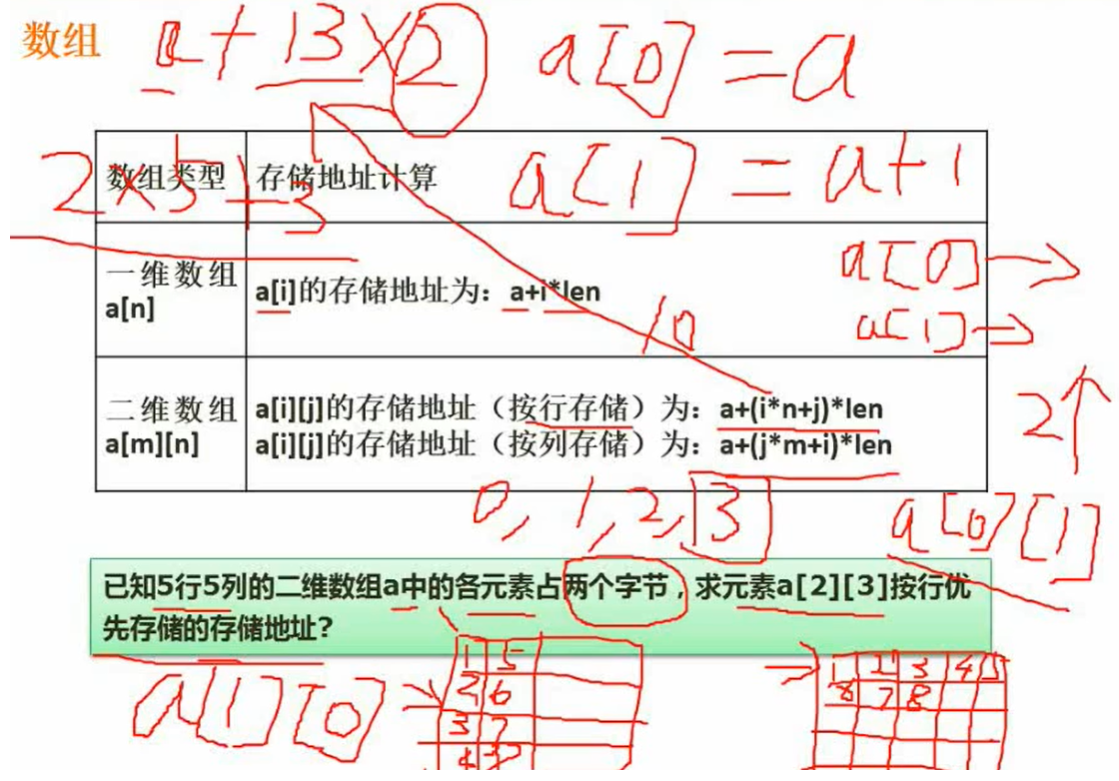 数组 a+13×2 a[0]=a
数组类型 存储地址计算 a[1]=a+1
2×5+3
一维数组 a[0]→
a[n]
a[i]的存储地址为：a+i*len
10
a[1]→
二维数组
a[m][n]
a[i][j]的存储地址（按行存储）为：a+(i*n+j)*len
a[i][j]的存储地址（按列存储）为：a+(j*m+i)*len
2↑
0, 1, 2, 3
a[0][1]
已知5行5列的二维数组a中的各元素占两个字节，求元素a[2][3]按行优
先存储的存储地址？
a[1][0]
1 5
2 6
3 7
1 2 3 4 5
7 8